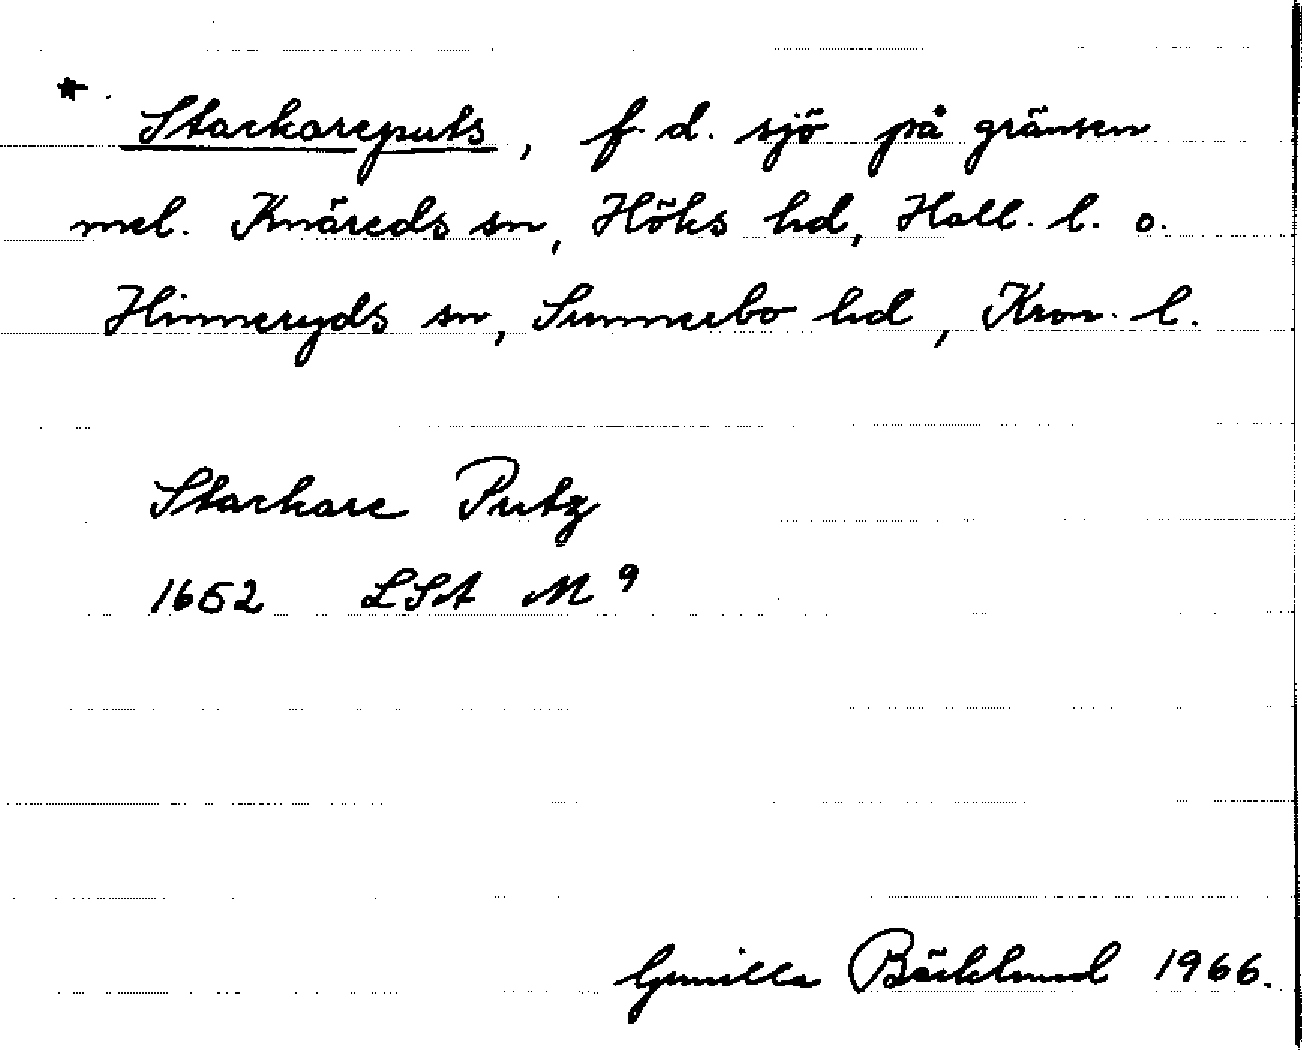 * Stackareputs, f. d. sjö på gränsen
mel. Knäreds sn, Höks hd, Hall. l. o.
Hinneryds sn, Sunnerbo hd, Kron. l.
Stackare Putz
1652 LSA M 9
Gunilla Bäcklund 1966.